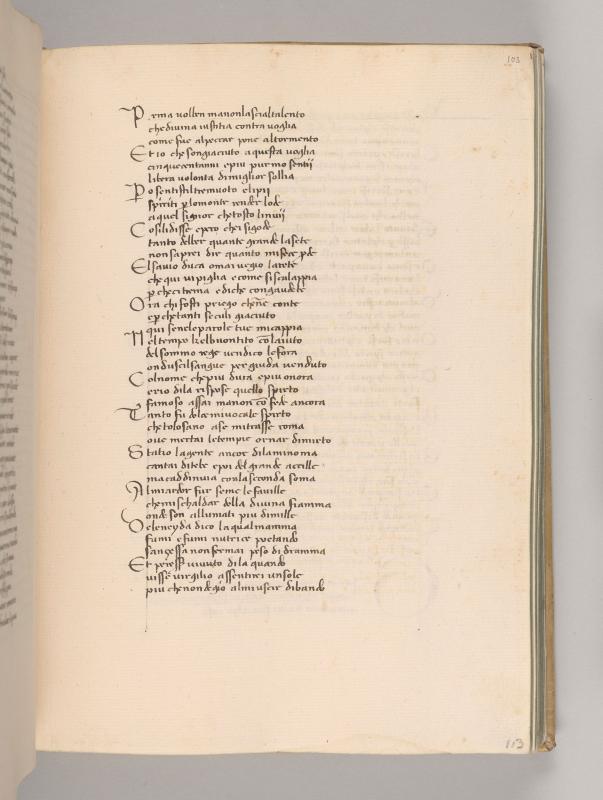 103
Prima vollen manonlascialtalento
che divina iustitia contra voglia
come fue alpeccar pone altormento
Et io che songiaciuto a questa voglia
cinquecentanni epiu pur mo sentii
libera volonta dimiglior sollia
Po sentistiltremuoto elipii
spiriti p lomonte render lode
aquel signor chetosto linvii
Cosilidisse epero chei sigode
tanto delber quante grande lasete
non saprei dir quanto mifece pde
Elsavio duca omai vegio larete
che qui vipiglia e come si scalappia
p checi trema ediche congaudete
Ora chi fosti priego chene conte
e p chetanti seculi giaciuto
qui sene le parole tue micappia
Nel tempo kelbuontito co laiuto
del sommo rege vendico le fora
onduscilsangue per giuda venduto
Colnome che piu dura epiu onora
erio dila rispose quello spirto
famoso assai manon co fede ancora
Tanto fu dolce mivocale spirto
che tolosano ase mitrasse roma
ove mertai le tempie ornar dimirto
Statio lagente ancor dilaminoma
cantai ditebe epoi del grande accille
ma caddinvia con la seconda soma
Almiardor fur seme le faville
chemischaldar della divina fiamma
onde son allumati piu dimille
Deleneyda dico laqual mamma
fumi e fumi nutrice poetando
sanzessa non fermai peso di dramma
Et peresser vivuto di la quando
visse virgilio assentirei unsole
piu chenondegio almi uscir dibando
113